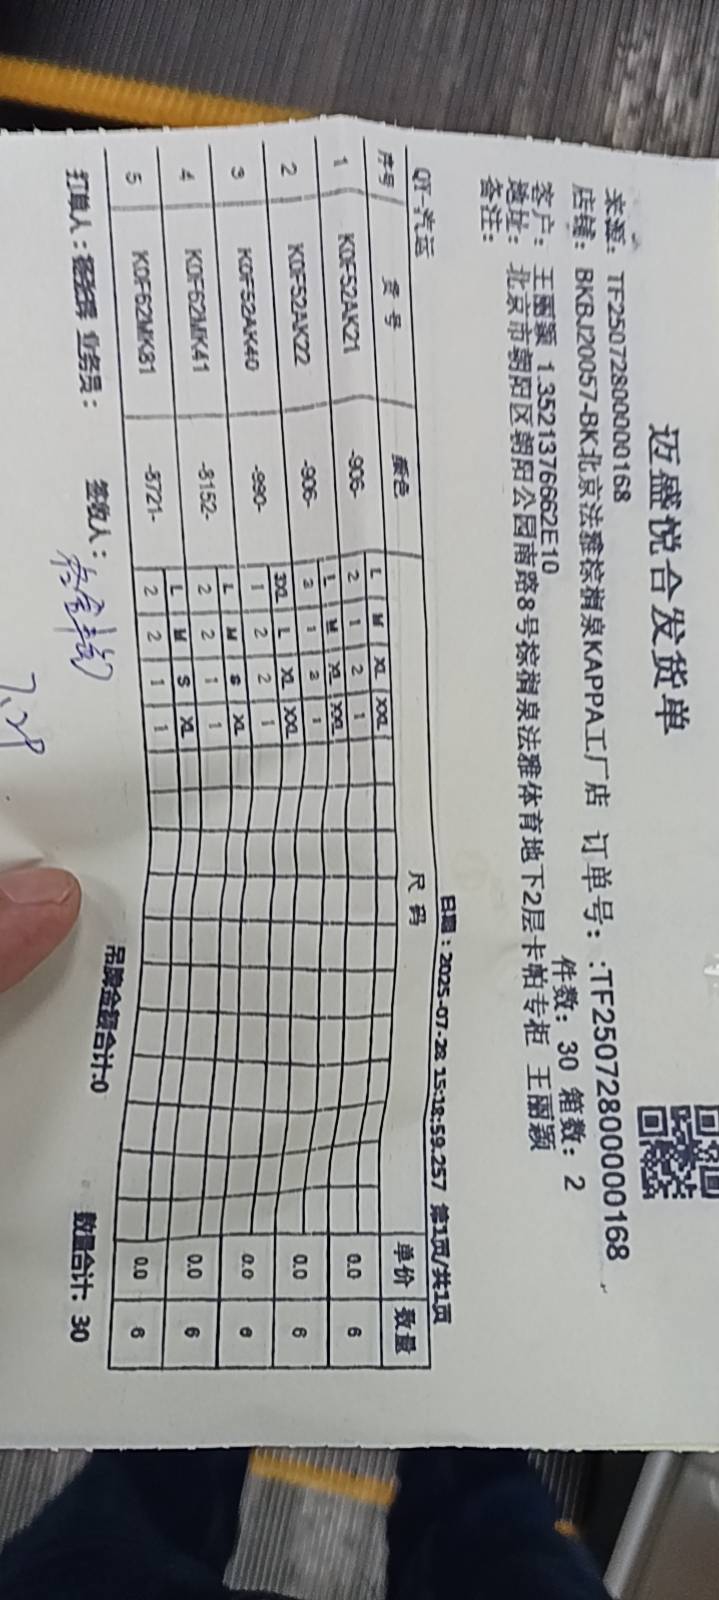 迈盛悦合发货单
来源: TF25072800000168
店铺: BKBJ20057-BK北京法雅棕榈泉KAPPA工厂店 订单号: :TF25072800000168
客户: 王丽颖 1.3521376662E10 件数: 30 箱数: 2
地址: 北京市朝阳区朝阳公园南路8号棕榈泉法雅体育地下2层卡帕专柜 王丽颖
备注:
QY-汽运 日期: 2025-07-28 15:18:59.257 第1页/共1页
序号 货号 颜色 尺码 单价 数量
L M XL XXL
1 K0F52AK21 -906- 2 1 2 1 0.0 6
L M XL XXL
2 K0F52AK22 -906- 2 1 2 1 0.0 6
3XL L XL XXL
3 K0F52AK40 -990- 1 2 2 1 0.0 6
L M S XL
4 K0F62MK41 -8152- 2 2 1 1 0.0 6
L M S XL
5 K0F62MK81 -8721- 2 2 1 1 0.0 6
打单人: 业务员: 签收人: 吊牌金额合计:0 数量合计: 30
7.28